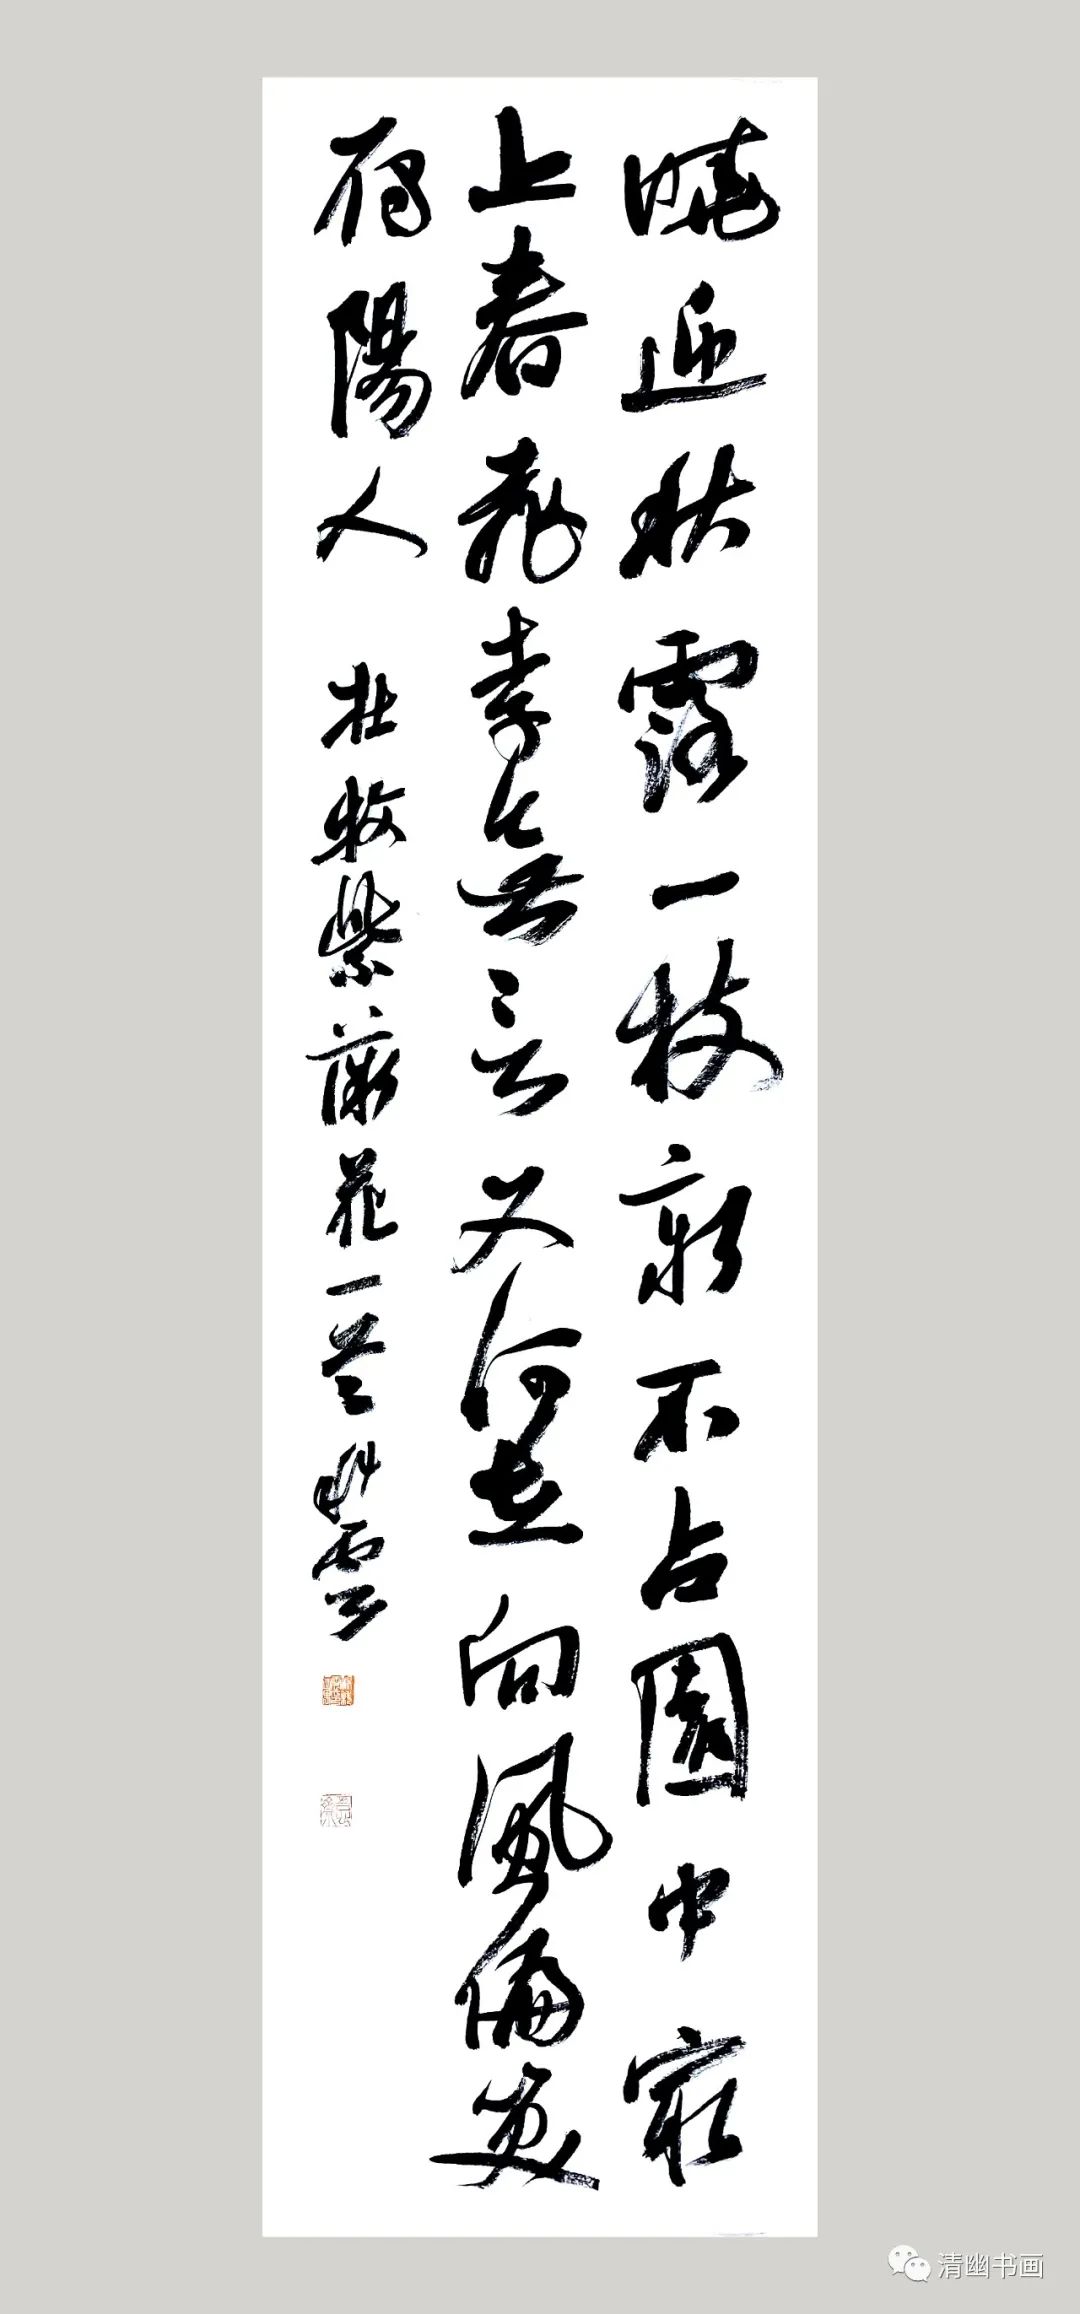 曉迎秋露一枝新不占園中最
上春桃李無言又何在向風偏笑
艷陽人 杜牧紫薇花一首 耕雲
清幽书画